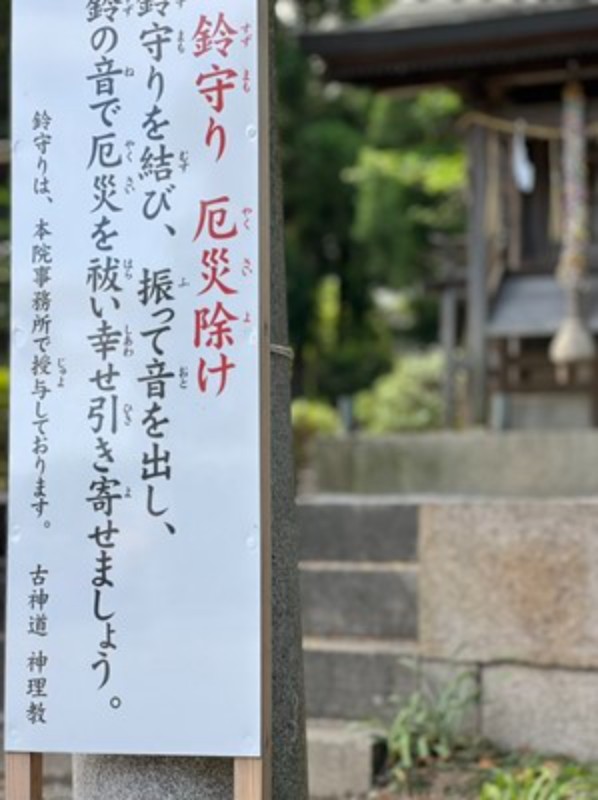 鈴守り 厄災除け
鈴守りを結び、振って音を出し、
鈴の音で厄災を祓い幸せ引き寄せましょう。
鈴守りは、本院事務所で授与しております。 古神道 神理教